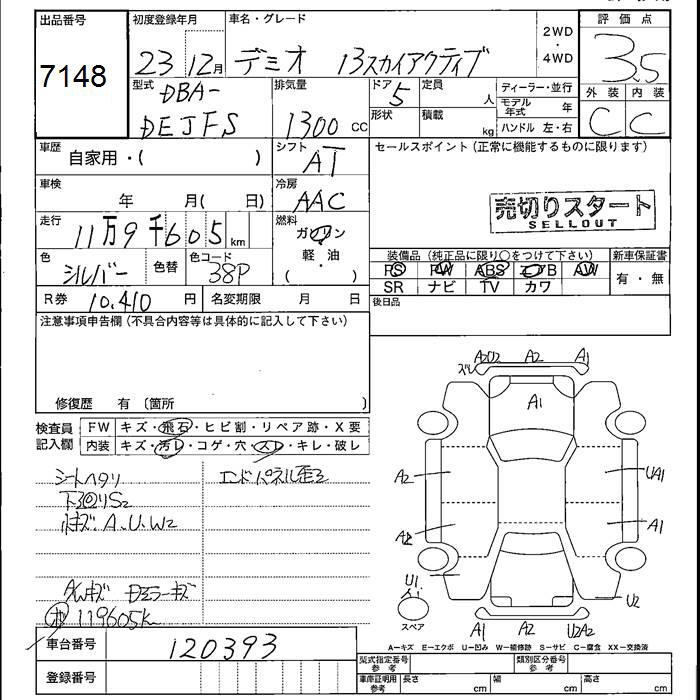 出品番号
7148
初度登録年月
23 12月
車名・グレード
デミオ 13スカイアクティブ
2WD
・
4WD
評価点
3.5
外装 内装
C C
型式
DBA-
DEJFS
排気量
1300 CC
ドア
5
定員
人
形状
積載
kg
ディーラー・並行
モデル年式 年
ハンドル 左・右
車歴
自家用・( )
シフト
AT
セールスポイント(正常に機能するものに限ります)
車検
年 月( 日)
冷房
AAC
売切りスタート
SELLOUT
走行
11万9千605km
燃料
ガソリン
軽・油
( )
色
シルバー
色替
色コード
38P
装備品(純正品に限り○をつけて下さい)
PS PW ABS エアB AW
SR ナビ TV カワ
新車保証書
有・無
R券 10,410 円
名変期限 月 日
後日品
注意事項申告欄(不具合内容等は具体的に記入して下さい)
修復歴 有 〔箇所 〕
検査員
記入欄
FW キズ・飛石・ヒビ割・リペア跡・X要
内装 キズ・汚レ・コゲ・穴・スレ・キレ・破レ
シートヘタリ
エンドパネル歪ミ
S2
キズ.A.U.W2
AWキズ Dミラーキズ
119605K
車台番号
120393
登録番号
A2U2 A2 A1
ズレ
A1
A2 UA1
A2 A1
U1
U2
スペア
A1 A2 U2A2
A-キズ E-エクボ U-凹み W-補修跡 S-サビ C-腐食 XX-交換済
型式指定番号
参考
類別区分番号
参考
車庫証明用
参考
長さ cm
幅 cm
高さ cm